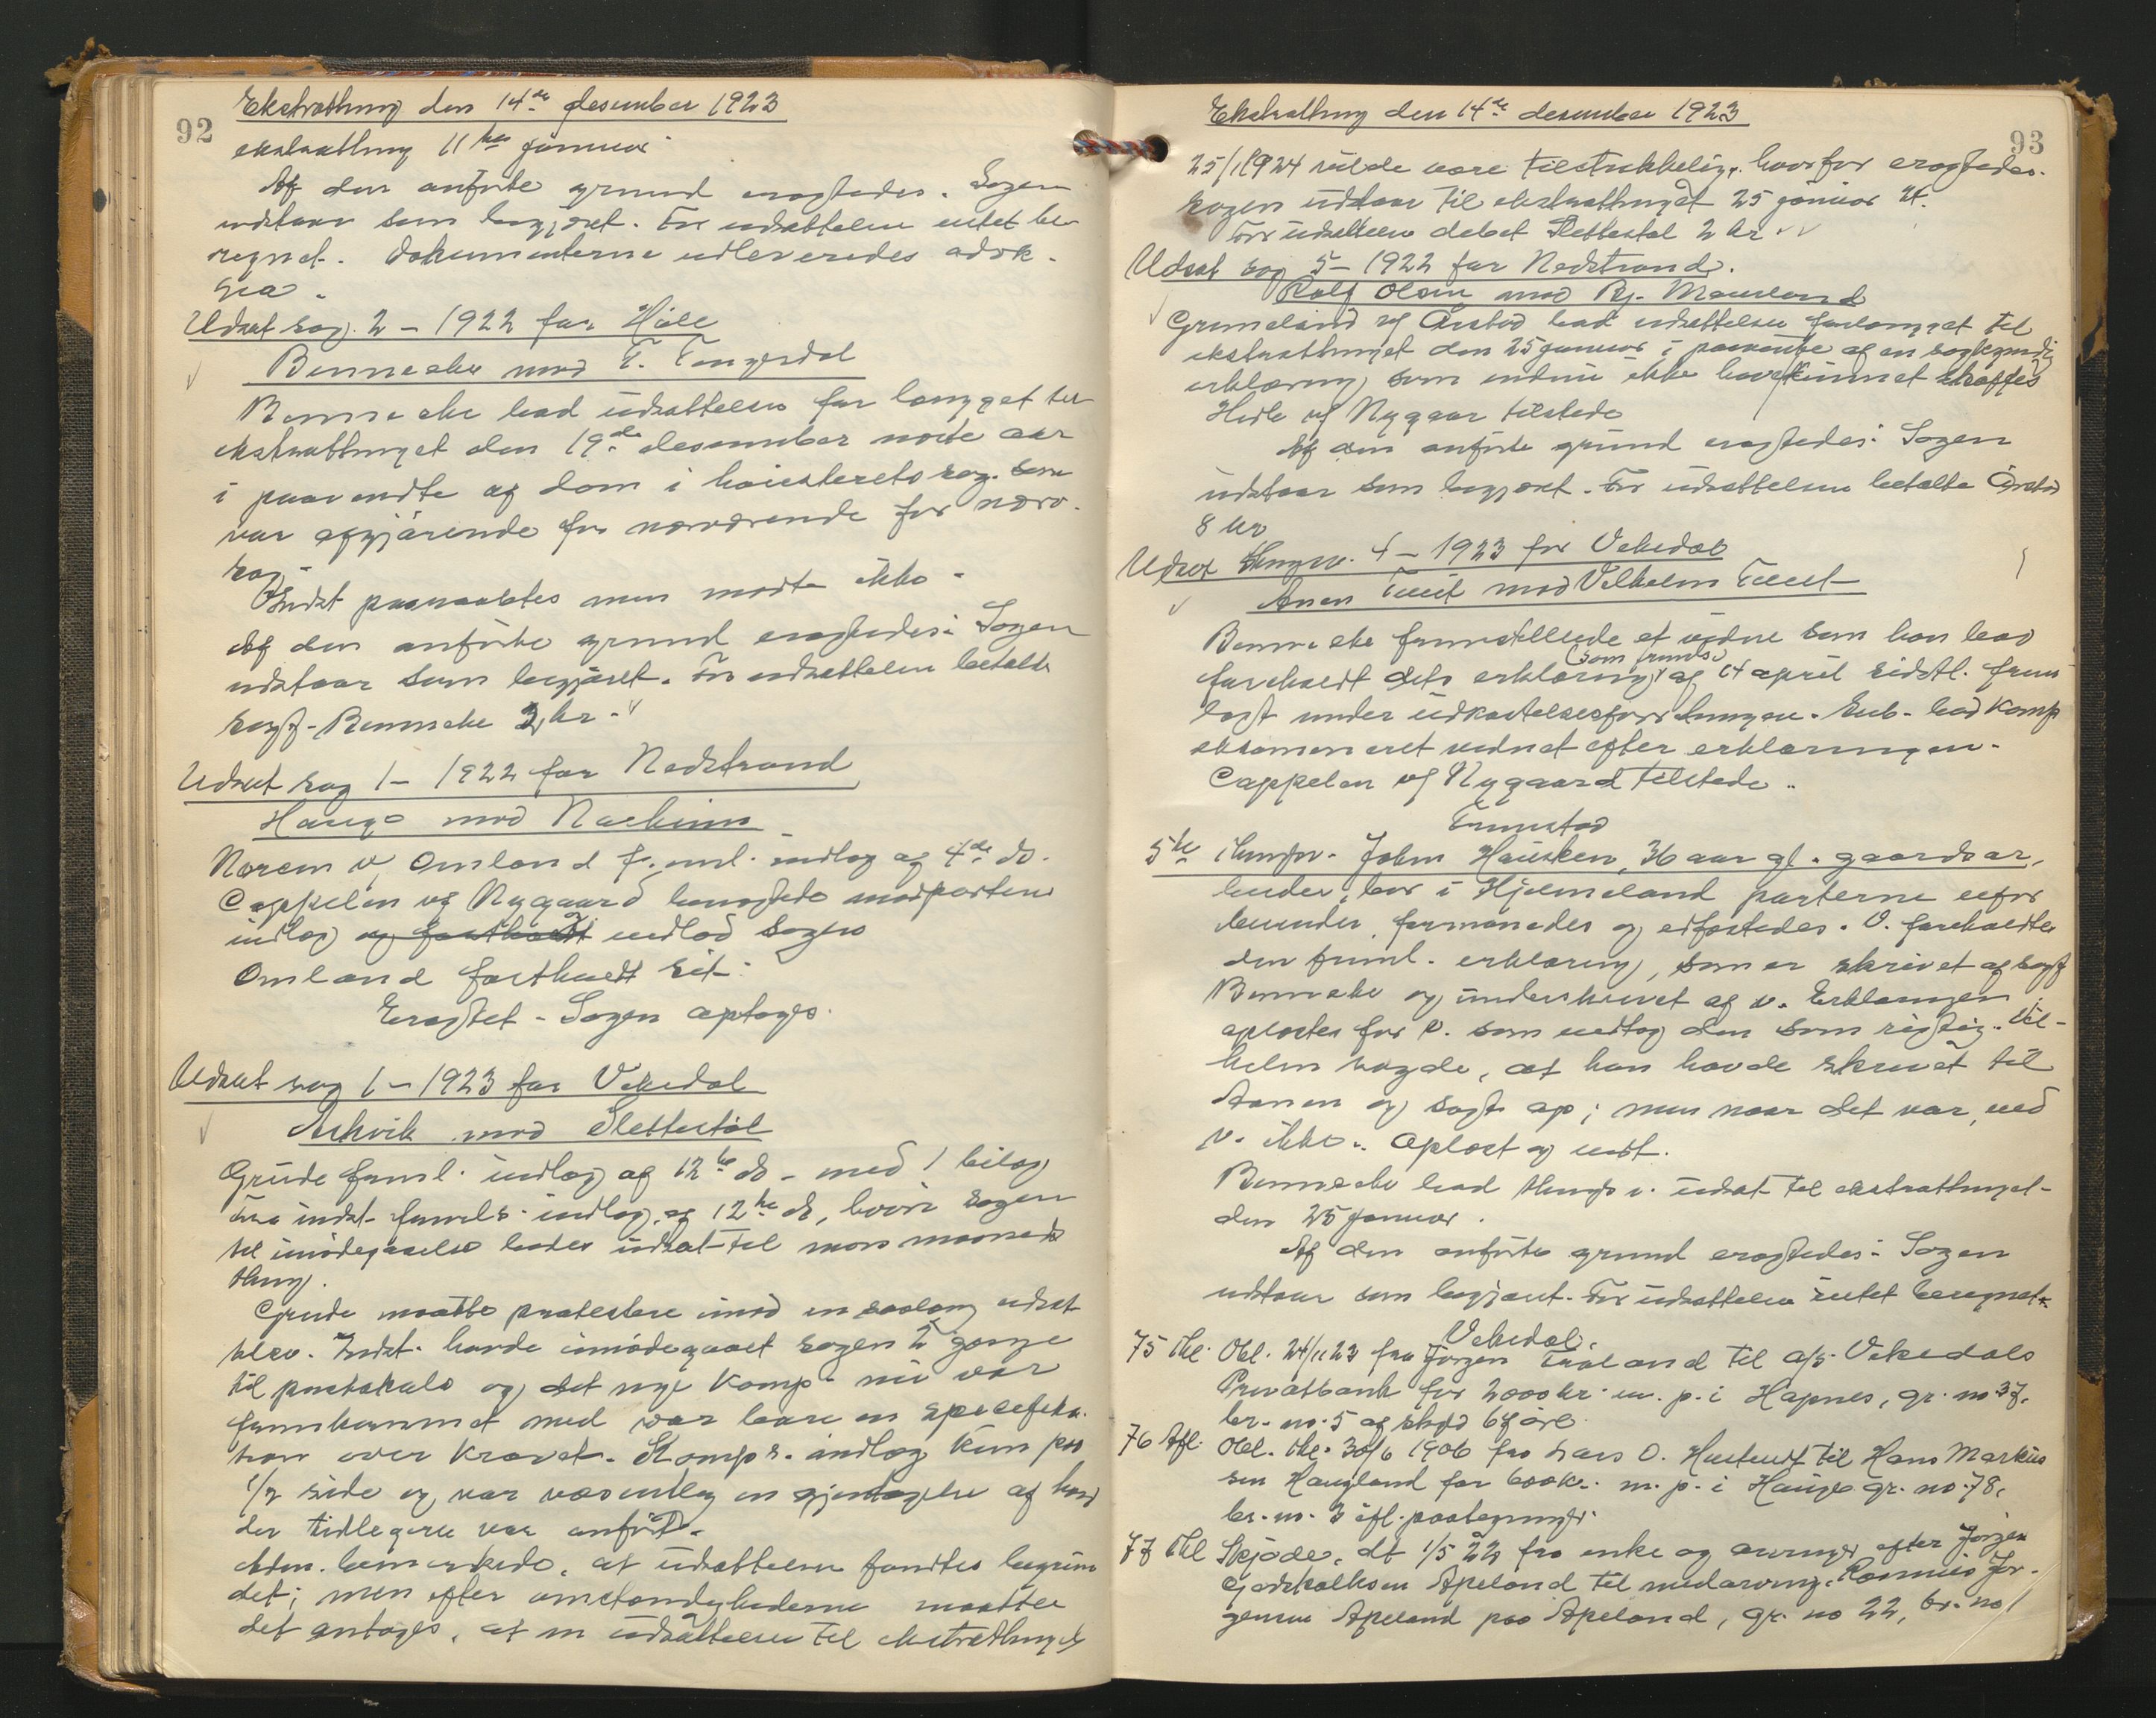 92
Ekstratthing den 14de desember 1923
ekstratthing 11te januar
Af den anførte grund eragtedes. Sagen
udstaar som begjæret. For udsættelsen intet be
regnet. Dokumenterne udleveredes adok.
Udsat sag 2 - 1922 for Hole
Bennecke mod T. Tengesdal
Bennecke bad udsættelse forlanget til
ekstratthinget den 19de desember næste aar
i paavendte af dom i høiesteretssag. som
var afgjørende for nærværende for nærv.
sag.
Indst paaraabtes men mødte ikke.
Af den anførte grund eragtedes: Sagen
udstaar som begjæret. For udsættelsen betalte
sagf. Bennecke 2 kr.
Udsat sag 1 - 1922 for Nedstrand
Hauge mod Naekim
Norem v/ Omland fr.ml. indlæg af 4de ds.
Cappelen v/ Nygaard benægtede modpartens
indlæg og fastholdt indlod sagen
Omland fastholdt sit.
Eragtet - Sagen optages.
Udsat sag 1 - 1923 for Vikedal
Askvik mod Slettestøl
Grude freml. indlæg af 12te ds - med 1 bilag
fra indst. fremls. indlæg af 12te ds, hvori sagen
til imødegaaelse bedes udsat til mors maaneds
thing.
Grude maatte protestere imod en saalang udsæt
telse. Indst. havde imødegaaet sagen 2 gange
til protokols og det nye komp. nu var
fremkommet med var bare en specefika
tion over kravet. Komps. indlæg kun paa
1/2 side og var væsentlig en gjentagelse af hvad
der tidligere var anført.
Adm. bemærkede, at udsættelsen fandtes begrun
det; men efter omstændighederne maatte
det antages, at en udsættelse til ekstratthinget
93
Ekstratthing den 14de desember 1923
25/1 1924 vilde være tilstrækkelig. hvorfor eragtedes.
Sagen udstaar til ekstratthinget 25 januar 24.
For udsættelsen debet Slettestøl 2 kr.
Udsat sag 5 - 1922 for Nedstrand.
Rolf Olsen mod Rj. Mæland
Grimeland v/ Årstad bad udsættelse forlanget til
ekstratthinget den 25 januar i paavente af en sagkyndig
erklæring som endnu ikke havde kunnet skaffes
Hetle v/ Nygaar tilstede
Af den anførte grund eragtedes: Sagen
udstaar som begjæret. For udsættelsen betalte Årstad
8 kr
Udsat thingsv. 4 - 1923 for Vikedal
Anen Tveit mod Vilhelm Tveit
Bennecke fremstillede et vidne som han bad
foreholdt dets erklæring (som fremds) af 14 april sidstl. frem
lagt under udkastelsesforretningen. Sub. bad komp
eksamineret vidnet efter erklæringen.
Cappelen v/ Nygaard tilstede.
Fremstod
5te thingsv. John Hausken, 36 aar gl. gaardsar,
beider, bor i Hjelmeland parterne ufor
bunden, formanedes og edfæstedes. V. foreholdtes
den freml. erklæring, som er skrevet af sagf
Bennecke og underskrevet af v. Erklæringen
oplæstes for v. som vedtog den som rigtig. Vil-
helm sagde, at han havde skrevet til
Aanen og sagt op; men naar det var, ved
v. ikke. Oplæst og vedt.
Bennecke bad thingsv. udsat til ekstratthinget
den 25 januar.
Af den anførte grund eragtedes: Sagen
udstaar som begjæret. For udsættelsen intet beregnet.
Vikedal.
75 thl. Obl. 24/11 23 fra Jørgen Traland til a/s Vikedals
Privatbank for 2000 kr. m. p. i Hapnes, gr. no 37,
br. no. 5 af skyld 67 øre.
76 Afl. Obl. thl. 30/6 1906 fra Lars O. Hustveit til Hans Markus
sen Haugland for 600 kr. m. p. i Hauge gr. no. 78,
br. no. 3 ifl. paategning.
77 thl Skjøde, dt 1/5 22 fra enke og arvinger efter Jørgen
Godskalksen Apeland til medarving Rasmus Jør-
gensen Apeland paa Apeland, gr. no 22, br. no 1